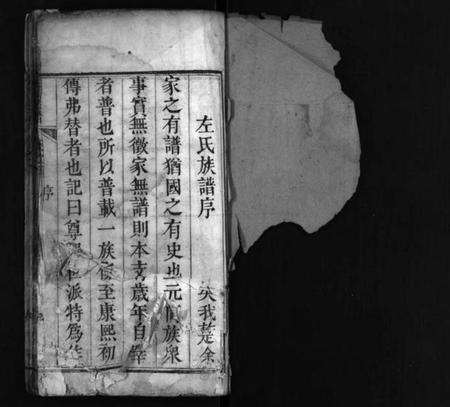 左氏族譜序
家之有譜猶國之有史也元 族衆 我楚余
事實無徵家無譜則本支 歲年自
者普也所以普載一族 至康熙初
傳弗替者也記曰尊 派特爲
序